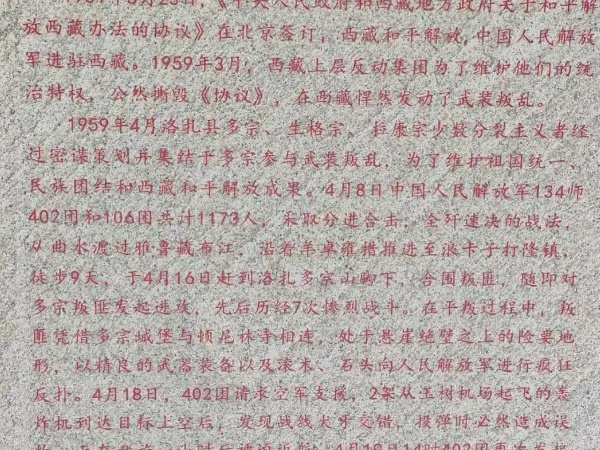 1951年5月23日，《中央人民政府和西藏地方政府关于和平解
放西藏办法的协议》在北京签订，西藏和平解放，中国人民解放
军进驻西藏。1959年3月，西藏上层反动集团为了维护他们的统
治特权，公然撕毁《协议》，在西藏悍然发动了武装叛乱。
1959年4月洛扎县多宗、生格宗、拉康宗少数分裂主义者经
过密谋策划并集结于多宗参与武装叛乱，为了维护祖国统一、
民族团结和西藏和平解放成果。4月8日中国人民解放军134师
402团和106团共计1173人，采取分进合击，全歼速决的战法，
从曲水渡过雅鲁藏布江，沿着羊卓雍措推进至浪卡子打隆镇，
徒步9天，于4月16日赶到洛扎多宗山脚下，合围叛匪，随即对
多宗叛匪发起进攻，先后历经7次惨烈战斗。在平叛过程中，叛
匪凭借多宗城堡与顿尼林寺相连，处于悬崖绝壁之上的险要地
形，以精良的武器装备以及滚木、石头向人民解放军进行疯狂
反扑。4月18日，402团请求空军支援，2架从玉树机场起飞的轰
炸机到达目标上空后，发现战线犬牙交错，投弹时必然造成误
4月18日14时402团再次发起